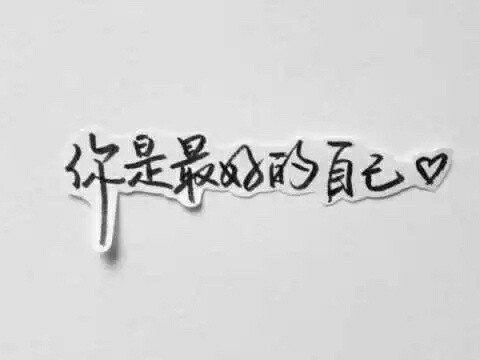 你是最好的自己♡